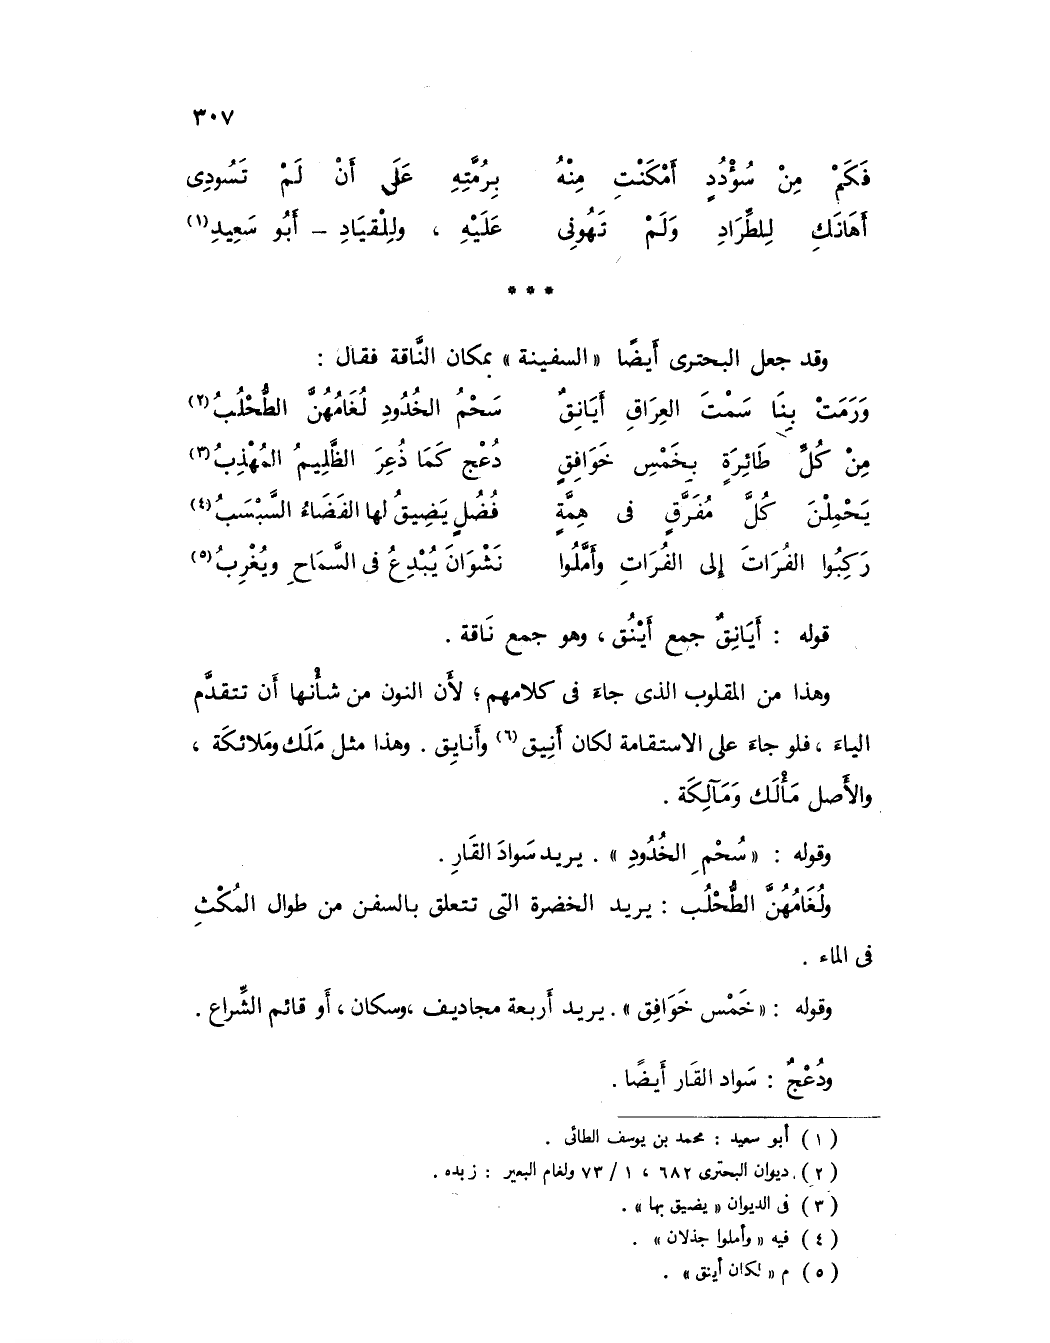 ٣٠٧
فَكَمْ مِنْ سُؤْدُدٍ أَمْكَنْتِ مِنْهُ بِرُمَّتِهِ عَلَى أَنْ لَمْ تَسُودِى
أَهَانَكِ لِلطِّرَادِ وَلَمْ تَهُونِى عَلَيْهِ ، ولِلْقيَادِ – أَبُو سَعِيدِ(١)
* * *
وقد جعل البحترى أَيضًا « السفينة » بمكان النَّاقة فقال :
وَرَمَتْ بِنَا سَمْتَ العِرَاقِ أَيَانِقٌ سَحْمُ الخُدُودِ لُغَامُهُنَّ الطُّحْلُبُ(٢)
مِنْ كُلِّ طَائِرَةٍ بِخَمْسِ خَوَافِقٍ دُعْج كَمَا ذُعِرَ الظَّلِيمُ المُهْذِبُ(٣)
يَحْمِلْنَ كُلَّ مُفَرَّقٍ فى هِمَّةٍ فُضُلٍ يَضِيقُ لها الفَضَاءُ السَّبْسَبُ(٤)
رَكِبُوا الفُرَاتَ إلى الفُرَاتِ وأَمَّلُوا نَشْوَانَ يُبْدِعُ فى السَّمَاحِ ويُغْرِبُ(٥)
قوله : أَيَانِقٌ جمع أَيْنُق ، وهو جمع نَاقة .
وهذا من المقلوب الذى جاءَ فى كلامهم ؛ لأَن النون من شأْنها أَن تتقدَّم
الياءَ ، فلو جاءَ على الاستقامة لكان أَنِيق(٦) وأَنايق . وهذا مثل مَلَك ومَلائكَة ،
والأَصل مَأْلَك وَمَآلِكَة .
وقوله : « سُحْمِ الخُدُودِ » . يريد سَوادَ القَارِ .
ولُغَامُهُنَّ الطُّحْلُب : يريد الخضرة التى تتعلق بالسفن من طوال المُكْثِ
فى الماء .
وقوله : « خَمْس خَوَافِق » . يريد أَربعة مجاديف ،وسكان ، أَو قائم الشِّراع .
ودُعْجٌ : سَواد القَار أَيضًا .
( ١ ) أبو سعيد : محمد بن يوسف الطائى .
( ٢ ) . ديوان البحترى ٦٨٢ ، ١ / ٧٣ ولغام البعير : زبده .
( ٣ ) فى الديوان « يضيق بها » .
( ٤ ) فيه « وأملوا جذلان » .
( ٥ ) م « لكان أينق » .